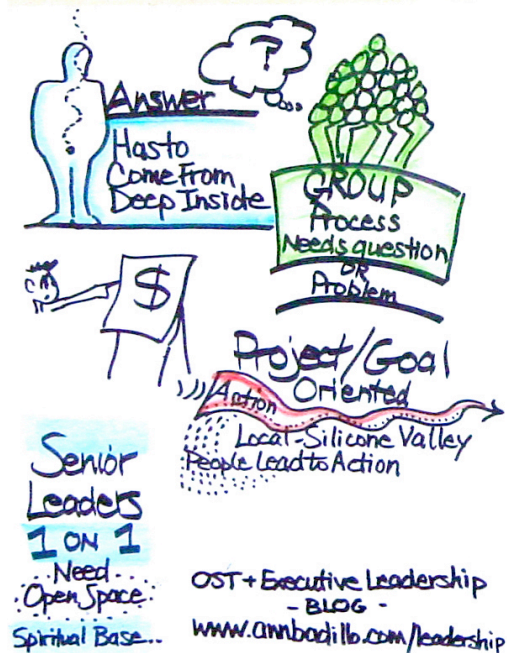 ?
Answer
Has to
Come From
Deep Inside
GROUP
Process
Needs question
OR
Problem
$
Project/Goal
Oriented
Action
Local-Silicone Valley
People Lead to Action
Senior
Leaders
1 ON 1
Need
Open Space
Spiritual Base...
OST + Executive Leadership
- BLOG -
www.annbadillo.com/leadership